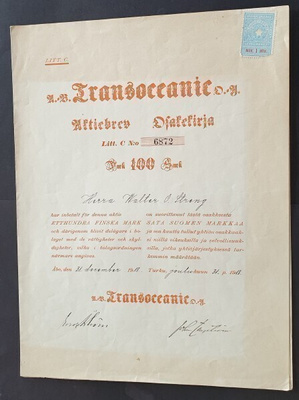 LITT. C.
A.-B. Transoceanic O.-Y.
Aktiebrev Osakekirja
Litt. C N:o 6872
Fmk 100 Smk
Herra Walter O. Streng
har erlagt för denna aktie
ETTHUNDRA FINSKA MARK
och därigenom blivit delägare i bo-
laget med de rättigheter och skyl-
digheter, vilka i bolagsordningen
närmare angivas.
on suorittanut tästä osakkeesta
SATA SUOMEN MARKKAA
ja sen kautta tullut yhtiön osakkaaksi
niillä oikeuksilla ja velvollisuuk-
silla, jotka yhtiöjärjestyksessä tar-
kemmin määrätään.
Åbo, den 31 december 1918. Turku, joulukuun 31 p. 1918.
A.-B. Transoceanic O.-Y.